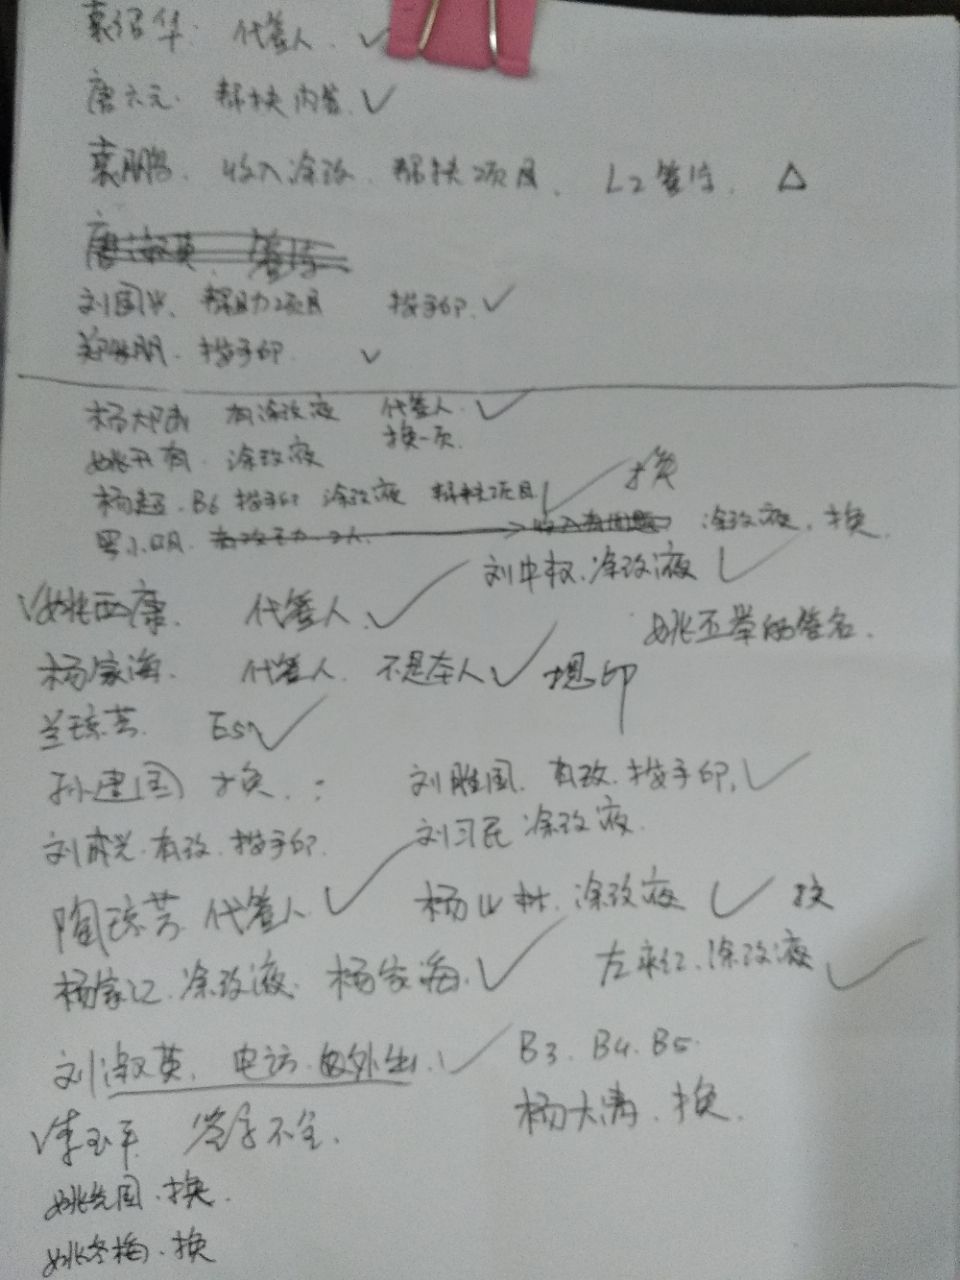 袁绍华. 代签人. ✓
唐六元. 帮扶内容. ✓
袁鹏. 收入涂改. 帮扶项目. L2签字. △
唐淑英. 签字
刘国兴. 帮助项目 按手印. ✓
朋. 按手印. ✓
杨大 有涂改液 代签人. ✓
姚开有. 涂改液 换一页.
杨超. B6 按手印 涂改液 帮扶项目 ✓ 换
罗小明. 涂改液. 换.
刘中权. 涂改液 ✓
✓姚西康. 代签人. ✓
姚丕举的签名.
杨家海. 代签人. 不是本人 ✓ 摁印
兰琼芳. E5 ✓
孙建国 换. :
刘胜国. 有改. 按手印. ✓
刘兴. 有改. 按手印.
刘习民 涂改液.
陶琼芳. 代签人. ✓
杨山林. 涂改液 ✓ 换
杨家江. 涂改液. 杨家海. ✓
左来红. 涂改液 ✓
刘淑英. 电访. 外出. ✓
B3. B4. B5.
杨大涛. 换.
✓李玉平 签字不全.
姚先国. 换.
姚冬梅. 换